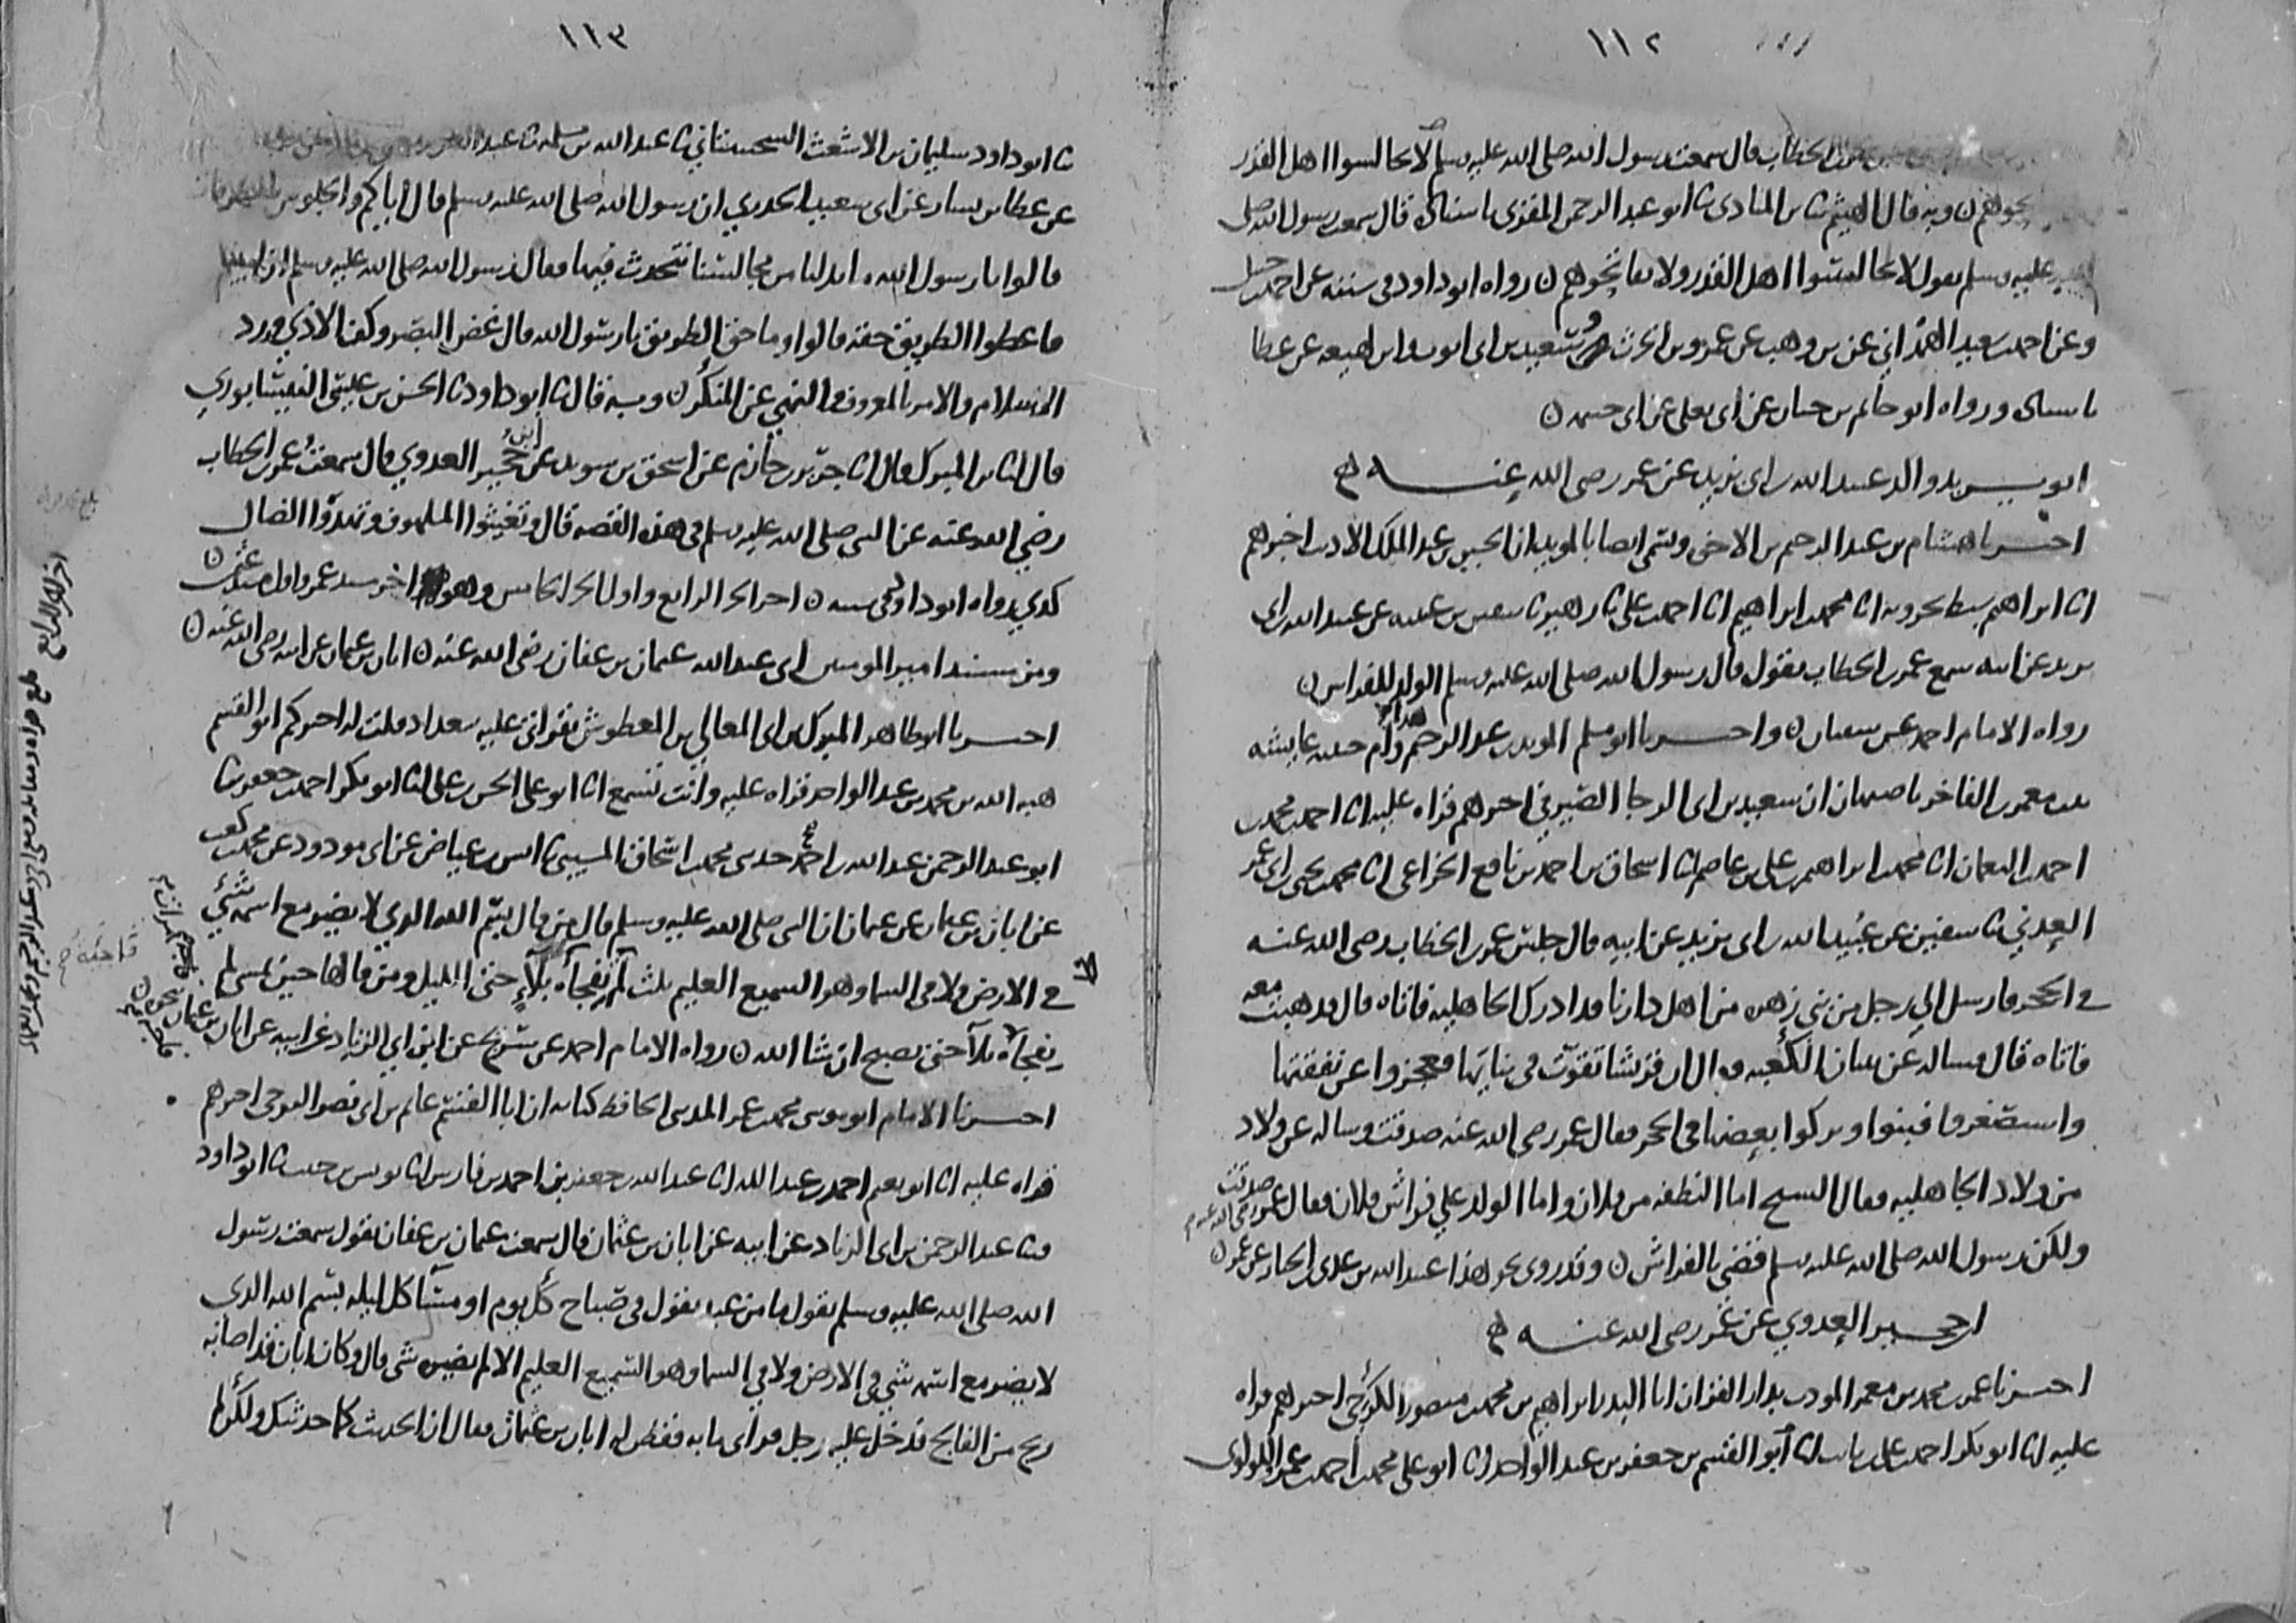 ١١٢
بن الخطاب قال سمعت رسول الله صلى الله عليه وسلم لا تجالسوا اهل القدر
وبه قال الهيثم المنادي ثنا ابو عبد الرحمن المقرى باسناده قال سمعت رسول الله صلى
عليه وسلم يقول لا تجالسوا اهل القدر ولا تفاتحوهم ن رواه ابو داود في سننه عن احمد بن حنبل
وعن احمد بن سعيد الهمداني عن بن وهب عن عمرو بن الحرث وسعيد بن ابي ايوب وابن لهيعة عن عطا
باسناده ورواه ابو حاتم بن حبان عن ابي يعلى عن ابي خيثمه ن
ابو يزيد والد عبيد الله بن ابي يزيد عن عمر رضي الله عنه
اخبرنا هشام بن عبد الرحيم بن الاخوة ويسمى ايضا بالمويد ان الحسين بن عبد الملك الاديب اخبرهم
انا ابراهيم سبط بحرويه انا محمد بن ابراهيم انا احمد بن علي ثنا زهير ثنا سفين بن عيينه عن عبيد الله بن ابي
يزيد عن ابيه سمع عمر بن الخطاب يقول قال رسول الله صلى الله عليه وسلم الولد للفراش ن
رواه الامام احمد عن سفيان ن واخبرنا ابو مسلم المويد بن عبد الرحيم وام حبيبه عايشه
بنت معمر بن الفاخر باصبهان ان سعيد بن ابي الرجا الصيرفي اخبرهم قراه عليه انا احمد بن محمد بن
احمد بن النعمان انا محمد بن ابراهيم بن علي بن عاصم انا اسحاق بن احمد بن نافع الخزاعي انا محمد بن يحيى بن ابي عمر
العدني ثنا سفين عن عبيد الله بن ابي يزيد عن ابيه قال جلس عمر بن الخطاب رضي الله عنه
في الحجر فارسل الى رجل من بني زهره من اهل دارنا قد ادرك الجاهليه فاتاه قال فذهبت معه
فاتاه قال فساله عن بنيان الكعبه فقال ان قريشا تقوت في بنايها فعجزوا عن نفقتها
واستصغروا فبنوا وتركوا بعضها في الحجر فقال عمر رضي الله عنه صدقت وساله عن ولاد
من ولاد الجاهليه فقال الشيخ اما النطفه من فلان واما الولد على فراش فلان فقال عمر رضي الله عنه صدقت
ولكن رسول الله صلى الله عليه وسلم قضى بالفراش ن وقد روى نحو هذا عبيد الله بن عدي بن الخيار عن عمر ن
ابن حجير العدوي عن عمر رضي الله عنه
اخبرنا عمر بن محمد بن معمر المودب بدار القزان ابا البدر ابراهيم بن محمد بن منصور الكرخي اخبرهم قراه
عليه انا ابو بكر احمد بن علي بن ثابت انا ابو القسم بن جعفر بن عبد الواحد انا ابو علي محمد بن احمد بن عمر اللولوي
١١٣
ثنا ابو داود سليمان بن الاشعث السجستاني ثنا عبد الله بن مسلمه ثنا عبد العزيز
عن عطا بن يسار عن ابي سعيد الخدري ان رسول الله صلى الله عليه وسلم قال اياكم والجلوس بالطرقات
قالوا يا رسول الله ما بد لنا من مجالسنا نتحدث فيها فقال رسول الله صلى الله عليه وسلم ان ابيتم
فاعطوا الطريق حقه قالوا وما حق الطريق يا رسول الله قال غض البصر وكف الاذى ورد
السلام والامر بالمعروف والنهي عن المنكر ن وبه قال ثنا ابو داود ثنا الحسن بن عيسى النيسابوري
قال انا بن المبرك قال انا جرير بن حازم عن اسحق بن سويد عن ابن حجير العدوي قال سمعت عمر بن الخطاب
رضي الله عنه عن النبي صلى الله عليه وسلم في هذه القصه قال وتغيثوا الملهوف وتهدوا الضال
كذى رواه ابو داود في سننه ن اخر الجز الرابع واول الجز الخامس وهو اخر مسند عمر واول مسند عثمن ن
ومن مسند امير المومنين ابي عبد الله عثمان بن عفان رضي الله عنه ن ابان بن عثمان عن ابيه رضي الله عنه ن
اخبرنا ابو طاهر المبرك بن ابي المعالي بن المعطوش بقراتي عليه ببغداد قلت له اخبركم ابو القسم
هبه الله بن محمد بن عبد الواحد قراه عليه وانت تسمع انا ابو علي الحسن بن علي انا ابو بكر احمد بن جعفر ثنا
ابو عبد الرحمن عبد الله بن احمد حدثني محمد بن اسحاق المسيبي ثنا انس بن عياض عن ابي مودود عن محمد بن كعب
عن ابان بن عثمان عن عثمان ان النبي صلى الله عليه وسلم قال من قال بسم الله الذي لا يضر مع اسمه شي
في الارض ولا في السما وهو السميع العليم ثلث لم تفجاه بلاء حتى الليل ومن قالها حين يمسي لم
تفجاه بلاء حتى يصبح ان شا الله ن رواه الامام احمد عن سريج عن ابن ابي الزناد عن ابيه عن ابان بن عثمان بنحوه ن
اخبرنا الامام ابو موسى محمد بن عمر المديني الحافظ كتابه ان ابا القسم غانم بن ابي نصر البرجي اخبرهم
قراه عليه انا ابو نعيم احمد بن عبد الله انا عبد الله بن جعفر بن احمد بن فارس انا يونس بن حبيب ثنا ابو داود
ثنا عبد الرحمن بن ابي الزناد عن ابيه عن ابان بن عثمان قال سمعت عثمان بن عفان يقول سمعت رسول
الله صلى الله عليه وسلم يقول ما من عبد يقول في صباح كل يوم او مسا كل ليله بسم الله الذي
لا يضر مع اسمه شي في الارض ولا في السما وهو السميع العليم الا لم يضره شي قال وكان ابان قد اصابه
ريح من الفالج فدخل عليه رجل فراى ما به ففطن له ابان بن عثمان فقال ان الحديث كما حدثتك ولكن لم